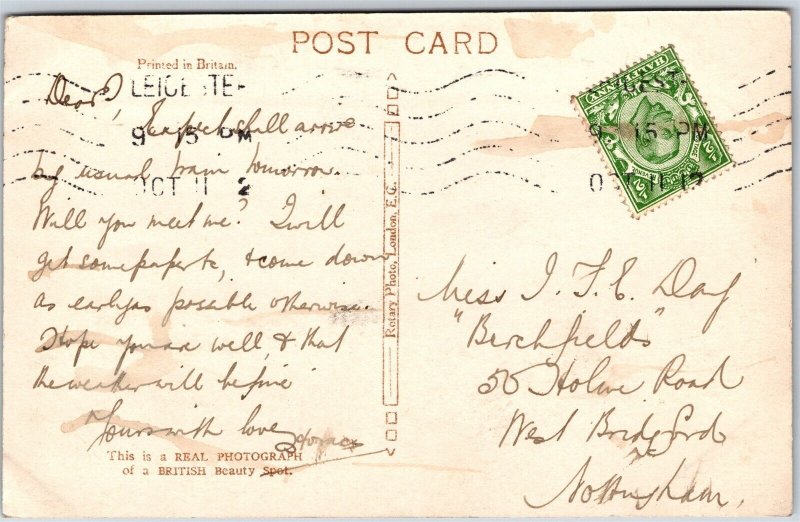 POST CARD
Printed in Britain.
LEICESTER
9 15 PM
OCT 11 12
Dear
I shall arrive
by usual train tomorrow.
Will you meet me? I will
get some paper &c, & come down
as early as possible otherwise.
Hope you are well, & that
the weather will be fine
Yours with love
Horace
This is a REAL PHOTOGRAPH
of a BRITISH Beauty Spot.
Rotary Photo, London, E.C.
HALFPENNY
9 15 PM
OCT 11 12
Miss I. F. E. Day
"Birchfields"
50 Holme Road
West Bridgford
Nottingham.